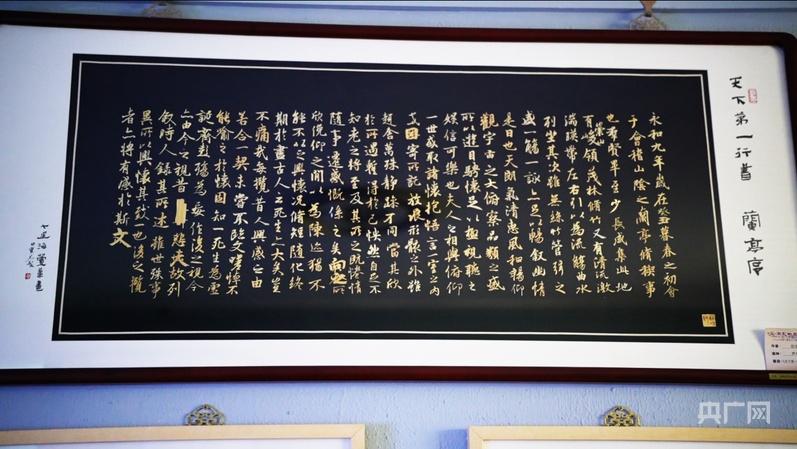 天下第一行書 蘭亭序
永和九年歲在癸丑暮春之初會
于會稽山陰之蘭亭脩稧事
也羣賢畢至少長咸集此地
有崇山峻領茂林脩竹又有清流激
湍暎帶左右引以為流觴曲水
列坐其次雖無絲竹管弦之
盛一觴一詠亦足以暢敘幽情
是日也天朗氣清惠風和暢仰
觀宇宙之大俯察品類之盛
所以遊目騁懷足以極視聽之
娛信可樂也夫人之相與俯仰
一世或取諸懷抱悟言一室之內
或因寄所託放浪形骸之外雖
趣舍萬殊靜躁不同當其欣
於所遇暫得於己快然自足不
知老之將至及其所之既惓情
隨事遷感慨係之矣向之所
欣俛仰之間以為陳迹猶不
能不以之興懷況脩短隨化終
期於盡古人云死生亦大矣豈
不痛哉每攬昔人興感之由
若合一契未嘗不臨文嗟悼不
能喻之於懷固知一死生為虛
誕齊彭殤為妄作後之視今
亦由今之視昔悲夫故列
敘時人錄其所述雖世殊事
異所以興懷其致一也後之攬
者亦將有感於斯文
央广网